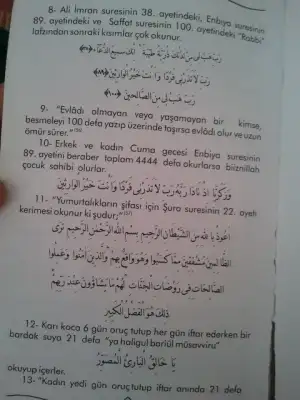 8- Ali İmran suresinin 38. ayetindeki, Enbiya suresinin
89. ayetindeki ve Saffat suresinin 100. ayetindeki "Rabbi"
lafzından sonraki kısımlar çok okunur.
رَبِّ هَبْ لِي مِنْ لَدُنْكَ ذُرِّيَّةً طَيِّبَةً إِنَّكَ سَمِيعُ الدُّعَاءِ ﴿٣٨﴾
رَبِّ لَا تَذَرْنِي فَرْدًا وَأَنْتَ خَيْرُ الْوَارِثِينَ ﴿٨٩﴾
رَبِّ هَبْ لِي مِنَ الصَّالِحِينَ ﴿١٠٠﴾
9- "Evlâdı olmayan veya yaşamayan bir kimse,
besmeleyi 100 defa yazıp üzerinde taşırsa evlâdı olur ve uzun
ömür sürer."
10- Erkek ve kadın Cuma gecesi Enbiya suresinin
89. ayetini beraber toplam 4444 defa okurlarsa biiznillah
çocuk sahibi olurlar.
وَزَكَرِيَّا إِذْ نَادَى رَبَّهُ رَبِّ لَا تَذَرْنِي فَرْدًا وَأَنْتَ خَيْرُ الْوَارِثِينَ
11- "Yumurtalıkların şifası için Şura suresinin 22. ayeti
kerimesi okunur ki şudur;"
أَعُوذُ بِاللَّهِ مِنَ الشَّيْطَانِ الرَّجِيمِ بِسْمِ اللَّهِ الرَّحْمَنِ الرَّحِيمِ تَرَى
الظَّالِمِينَ مُشْفِقِينَ مِمَّا كَسَبُوا وَهُوَ وَاقِعٌ بِهِمْ وَالَّذِينَ آمَنُوا وَعَمِلُوا
الصَّالِحَاتِ فِي رَوْضَاتِ الْجَنَّاتِ لَهُمْ مَا يَشَاؤُونَ عِنْدَ رَبِّهِمْ
ذَلِكَ هُوَ الْفَضْلُ الْكَبِيرُ
12- Karı koca 6 gün oruç tutup her gün iftar ederken bir
bardak suya 21 defa "ya haligul bariül müsavviru"
يَا خَالِقُ الْبَارِئُ الْمُصَوِّرُ
okuyup içerler.
13- "Kadın yedi gün oruç tutup iftar anında 21 defa